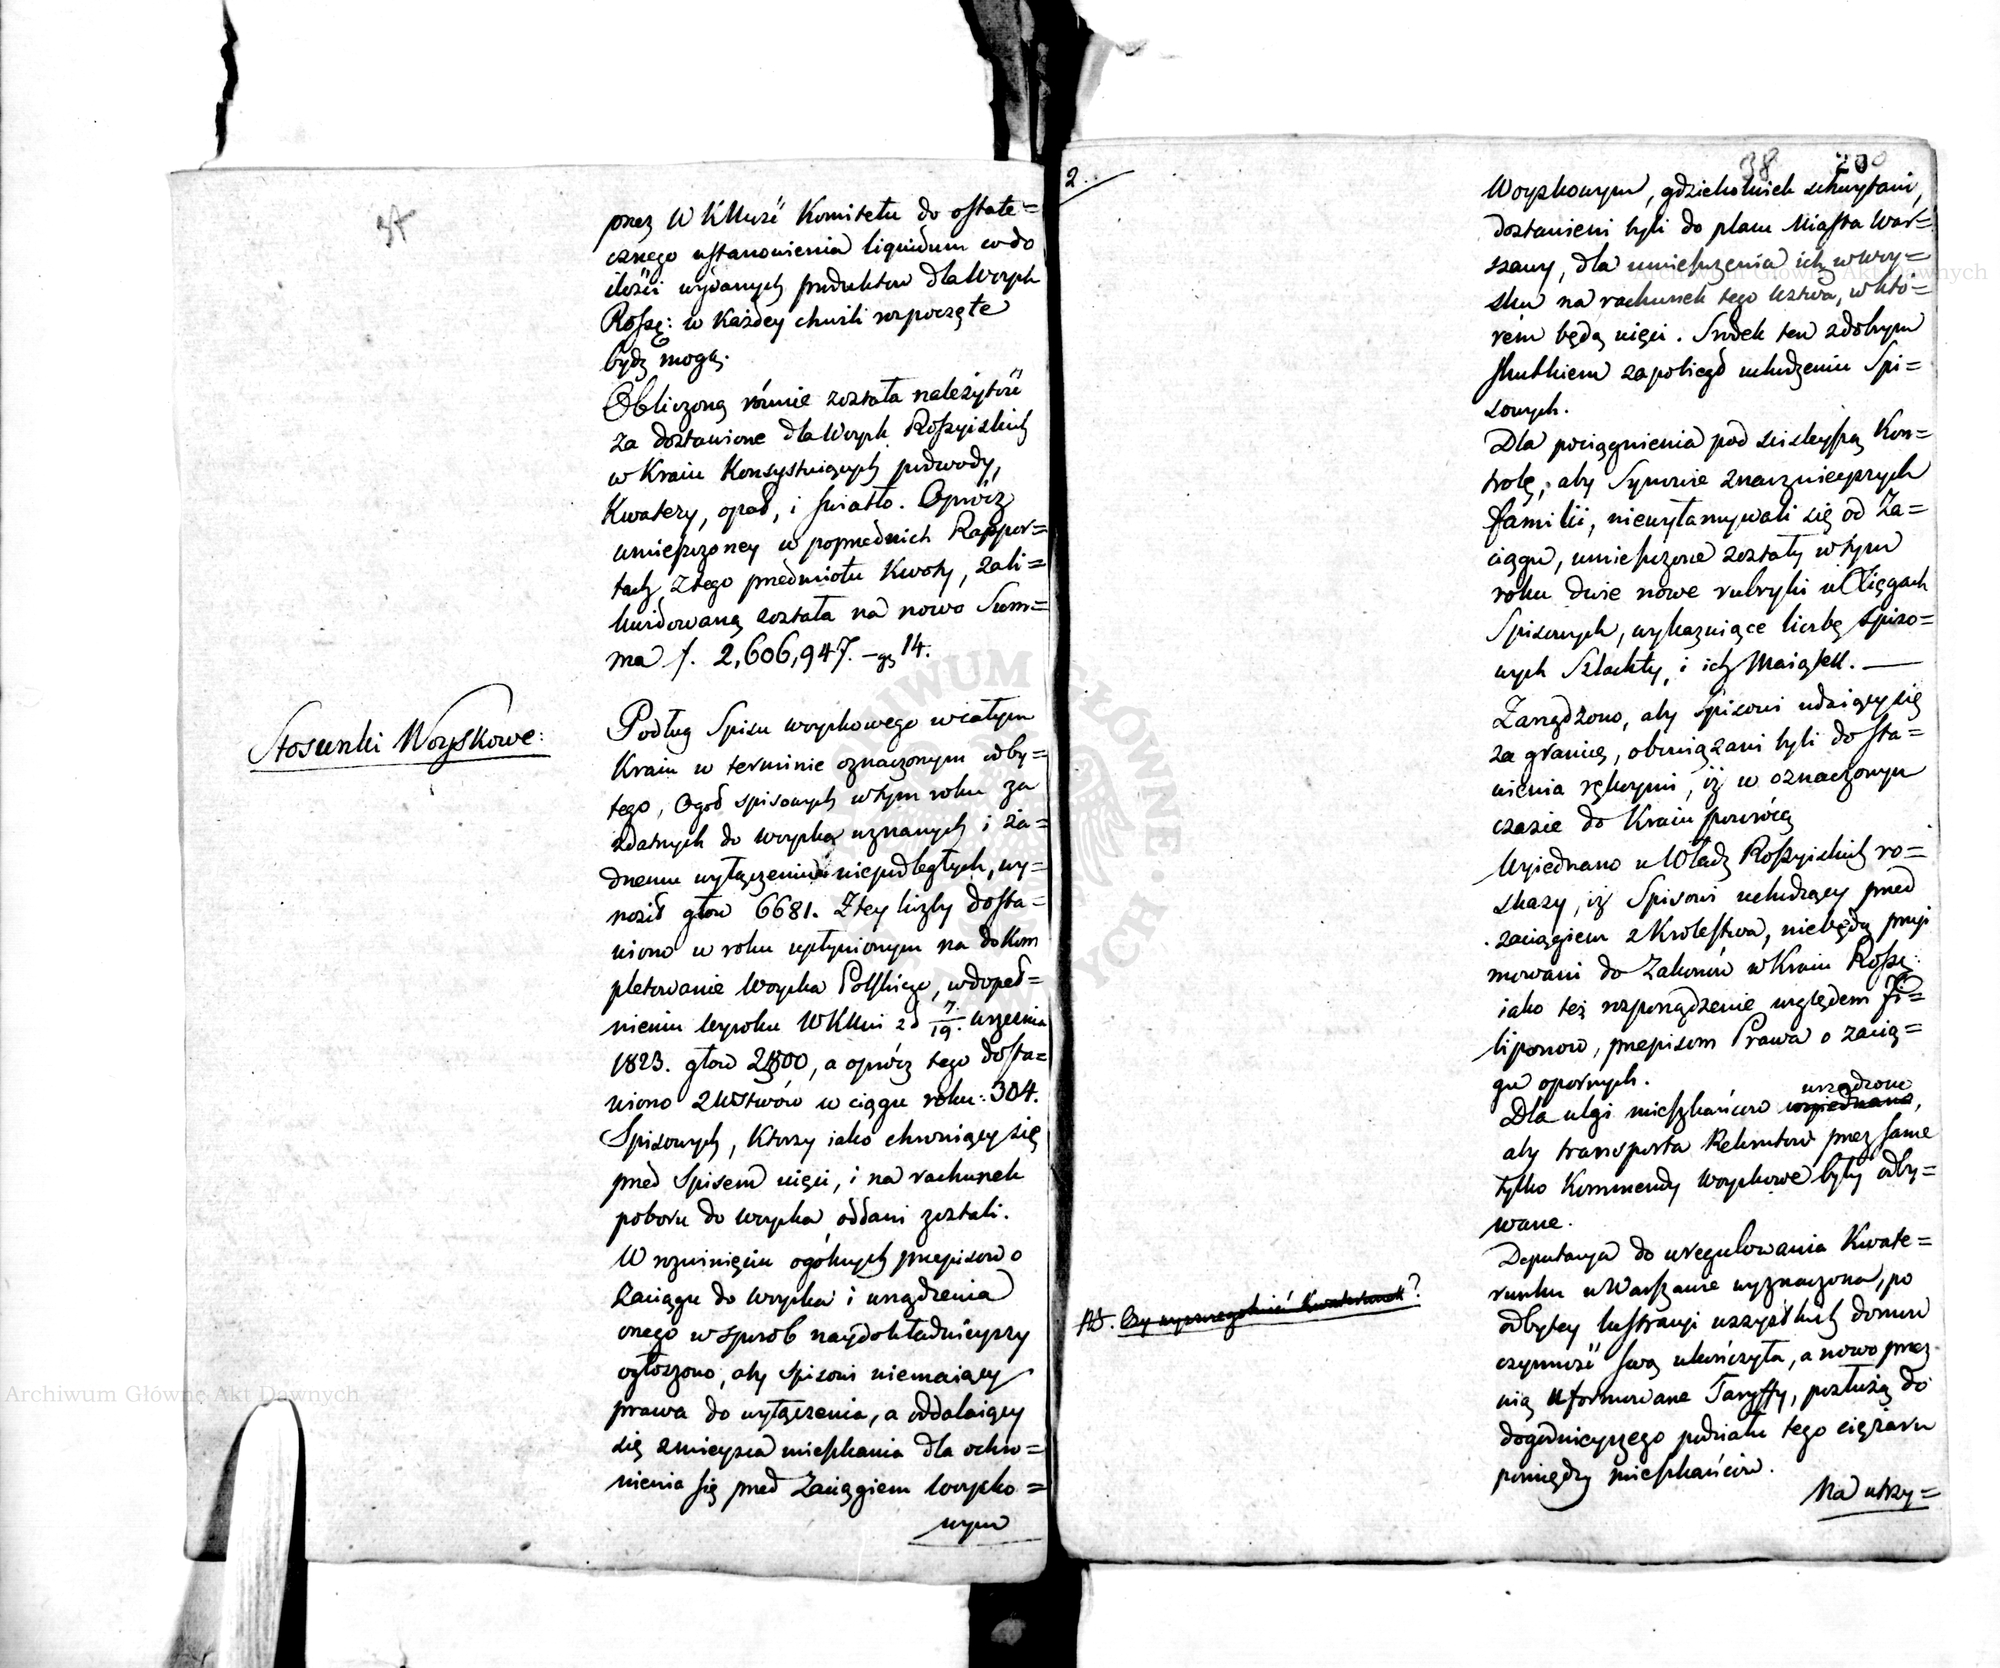 37
przez W KMość Komitetu do osta­te=
cznego ustanowienia liquidum co do
ilości wydanych produktow dla Woysk
Rossy: w każdey chwili rozpoczęte
bydz mogą.
Obliczoną równie została należytość
za dostawione dla Woysk Rossyiskich
w Kraiu Konsystuiących podwody,
Kwatery, opał, i światło. Oprócz
umieszczoney w poprzednich Rappor=
tach z tego przedmiotu Kwoty, zali=
kwidowaną została na nowo Sum=
ma f. 2,606,947. – gr 14.
Stosunki Woyskowe:
Podług Spisu woyskowego w całym
Kraiu w terminie oznaczonym odby=
tego, Ogół spisowych w tym roku za
zdatnych do woyska uznanych i ża=
dnemu wyłączeniu niepodległych, wy=
nosił głow 6681. Z tey liczby dosta=
wiono w roku upłynionym na dokom
pletowanie Woyska Polskiego, w dopeł=
nieniu Wyroku WKMci z d 7/19. września
1823. głow 2300, a oprócz tego dosta=
wiono z Wstwów w ciągu roku: 304.
Spisowych, Ktorzy iako chroniący się
przed Spisem uięci, i na rachunek
poboru do woyska oddani zostali.
W rozwinięciu ogólnych przepisow o
Zaciągu do woyska i urządzenia
onego w sposób naydokładnieyszy
ogłoszono, aby spisowi niemaiący
prawa do wyłączenia, a oddalaiący
się z mieysca mieszkania dla ochro=
nienia się przed Zaciągiem Woysko=
wym
2.
38 200
Woyskowym, gdziekolwiek schwytani,
dostawieni byli do placu Miasta War=
szawy, dla umieszczenia ich w woy=
sku na rachunek tego Wstwa, w któ=
rém będą uięci. Srodek ten zdolnym
skutkiem zapobiegł uchodzeniu Spi=
sowych.
Dla pociągnienia pod scisleyszą Kon=
trolę, aby Synowie znacznieyszych
familii, niewyłamywali się od Za=
ciągu, umieszczone zostały w tym
roku dwie nowe rubryki w Xięgach
Spisowych, wykazuiące liczbę spiso=
wych Szlachty, i ich Maiątek. —
Zarządzono, aby spisowi udaiący się
za granicę, obowiązani byli do sta=
wienia rękoymi, iż w oznaczonym
czasie do Kraiu powrócą
Wyiednano u Władz Rossyiskich ro=
zkazy, iż Spisowi uchodzący przed
zaciągiem z Krolestwa, niebędą przyi
mowani do Zakonów w Kraiu Rossy:
iako też rozporządzenie względem Fi=
liponow, przepisom Prawa o zacią=
gu opornych.
urządzono
Dla ulgi mieszkańcow wyiednano,
aby transporta Rekrutow przez same
tylko Kommendy Woyskowe były odby=
wane.
Deputacya do uregulowania Kwate=
runku w Warszawie wyznaczona, po
odbytey lustracyi wszystkich domow
czynność swą ukończyła, a nowo przez
nią uformowane Taryffy, posłużą do
dogodnieyszego podziału tego ciężaru
pomiędzy mieszkańców.
NB. Czy wyszczególnić Kwaterunek?
Na utrzy=
Archiwum Główne Akt Dawnych
Archiwum Główne Akt Dawnych
ARCHIWUM GŁÓWNE